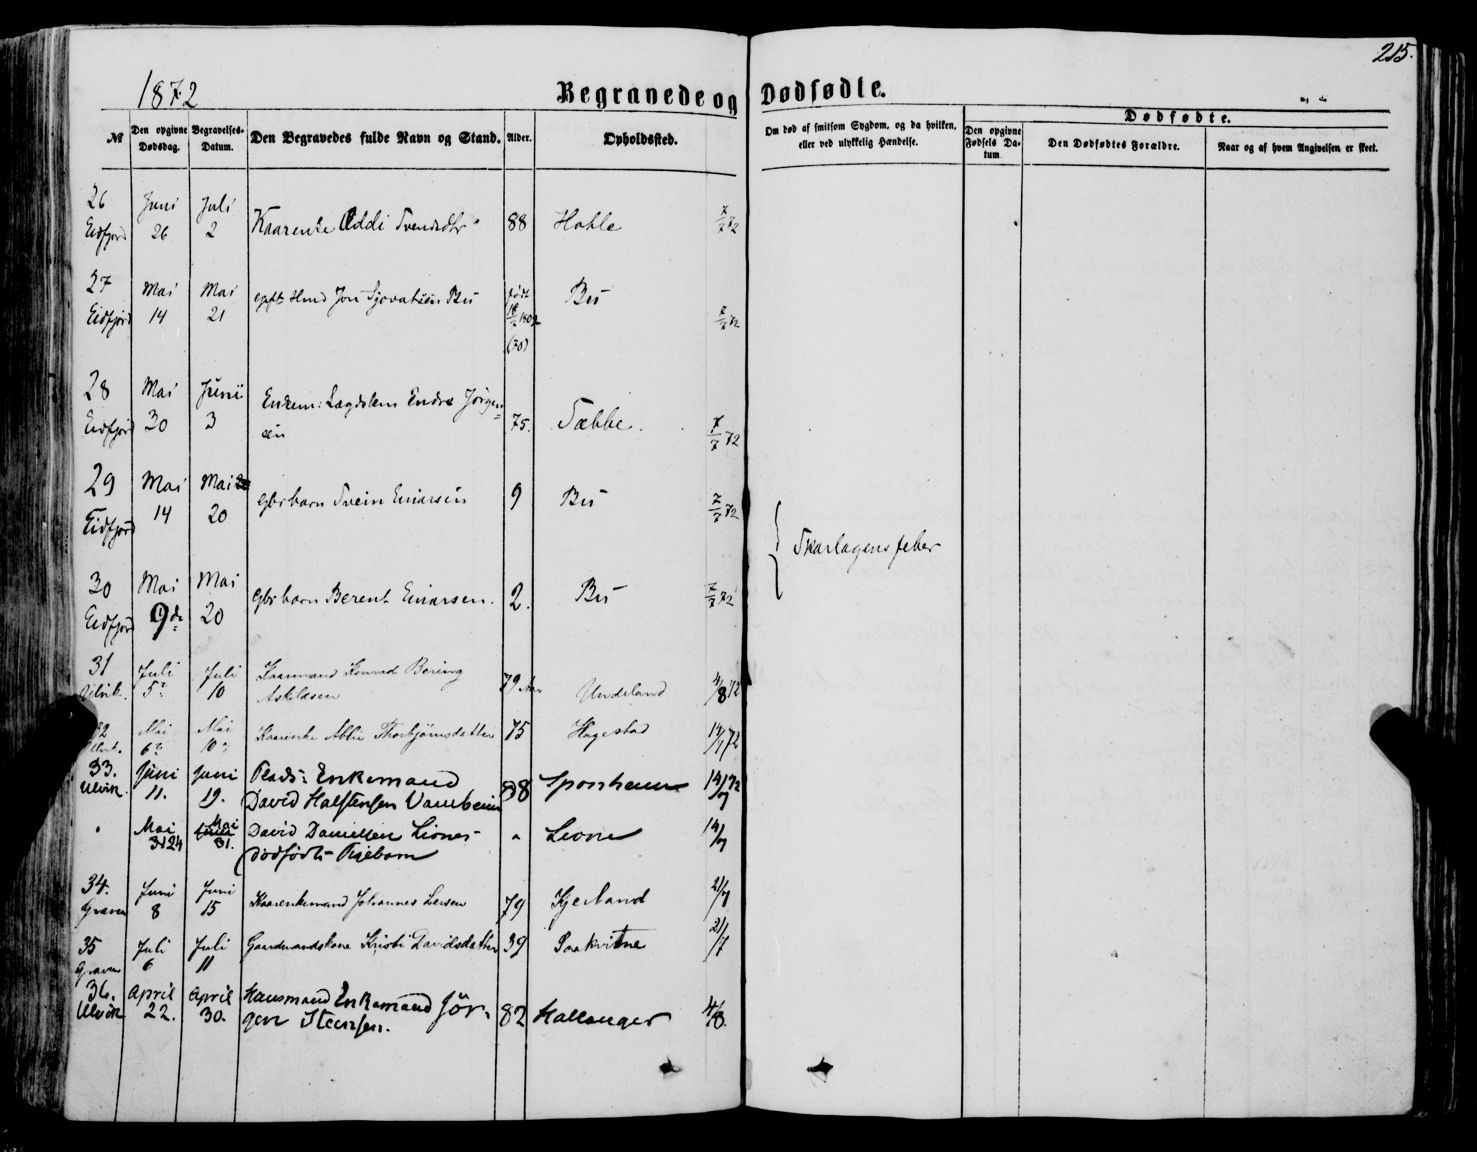 215.
1872
Begravede og Dødfødte.
№ Den opgivne Dødsdag. Begravelses-Datum. Den Begravedes fulde Navn og Stand. Alder. Opholdssted.
Om død af smitsom Sygdom, og da hvilken, eller ved ulykkelig Hændelse.
Dødfødte.
Den opgivne Fødsels Datum. Den Dødfødtes Forældre. Naar og af hvem Angivelsen er skeet.
26 Juni Juli
Eidfjord 26 2 Kaarenke Oddi Svendsdtr 88 Hable 7/7 72
27 Mai Mai født
Eidfjord 14 21 gift Hmd Jon Sjovatsen Bu 18/2 1802 Bu 7/7 72
(70)
28 Mai Juni Enkem: Lægdslem Endre Jørgen=
Eidfjord 30 3 sen 75. Sæbbe. 7/7 72
29 Mai Mai
Eidfjord 14 20 gbr barn Svein Einarsen 9 Bu 7/7 72
Skarlagensfeber
30 Mai Mai
Eidfjord 9de 20 gbr barn Berent Einarsen. 2. Bu 7/7 72
31 Juli Juli Kaarmand Konrad Bering
Ulvik. 5 10 Asklasen 79 Aar Undeland 4/8 72
32 Mai Mai
6 10 Kaarenke Ablu Thorbjørnsdatter 75 Hagestad 14/7 72
33. Juni Juni Plads: Enkemand
Ulvik. 11. 19. David Halstensen Vambeim 88 Sponheim 14/7 72
Mai Mai David Danielsen Liones
24 31. dødfødt Pigebarn Lione 14/7
34. Juni Juni
Graven 8 15 Kaarenkemand Johannes Larsen 79 Kjerland 21/7
35 Juli Juli Gaardmandskone Kristi Davidsdatter 39 Saakvitne 21/7
Graven 6 11
36. April April Husmand Enkemand Jør-
Ulvik 22. 30. gen Steensen. 82 Hallanger 4/8.